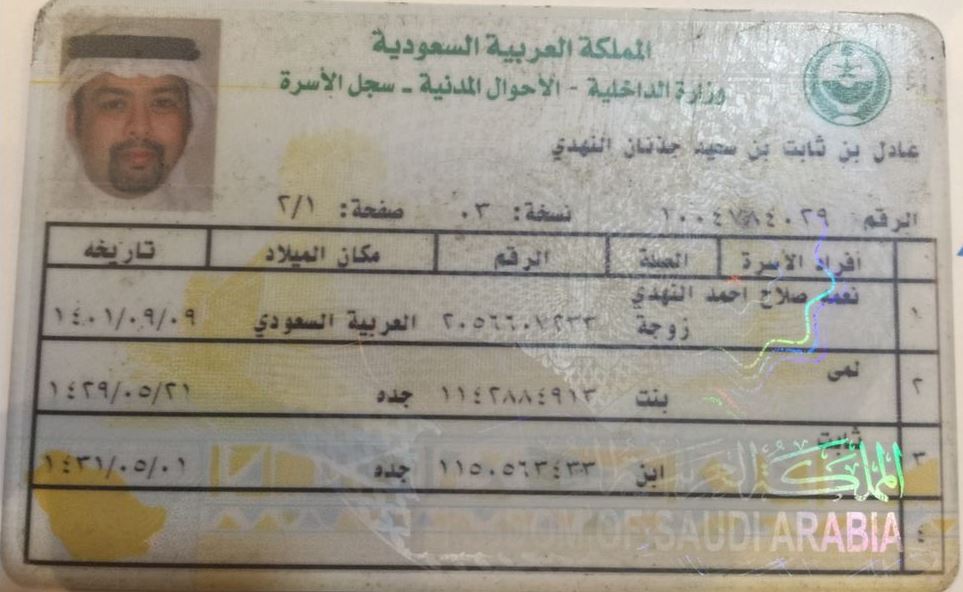 المملكة العربية السعودية
وزارة الداخلية - الأحوال المدنية - سجل الأسرة
عادل بن ثابت بن سعيد جذنان النهدي
الرقم ١٠٠٤٧٨٤٠٢٩ نسخة: ٠٣ صفحة: ٢/١
أفراد الأسرة الصلة الرقم مكان الميلاد تاريخه
صلاح احمد النهدي
١ زوجة ٢٠٥٦٦٠٧٢٣٣ العربية السعودي ١٤٠١/٠٩/٠٩
لمى
٢ بنت ١١٤٢٨٨٤٩١٣ جده ١٤٢٩/٠٥/٢١
ثابت
٣ ابن ١١٥٠٥٦٣٤٣٣ جده ١٤٣١/٠٥/٠١
المملكة العربية
OF SAUDI ARABIA